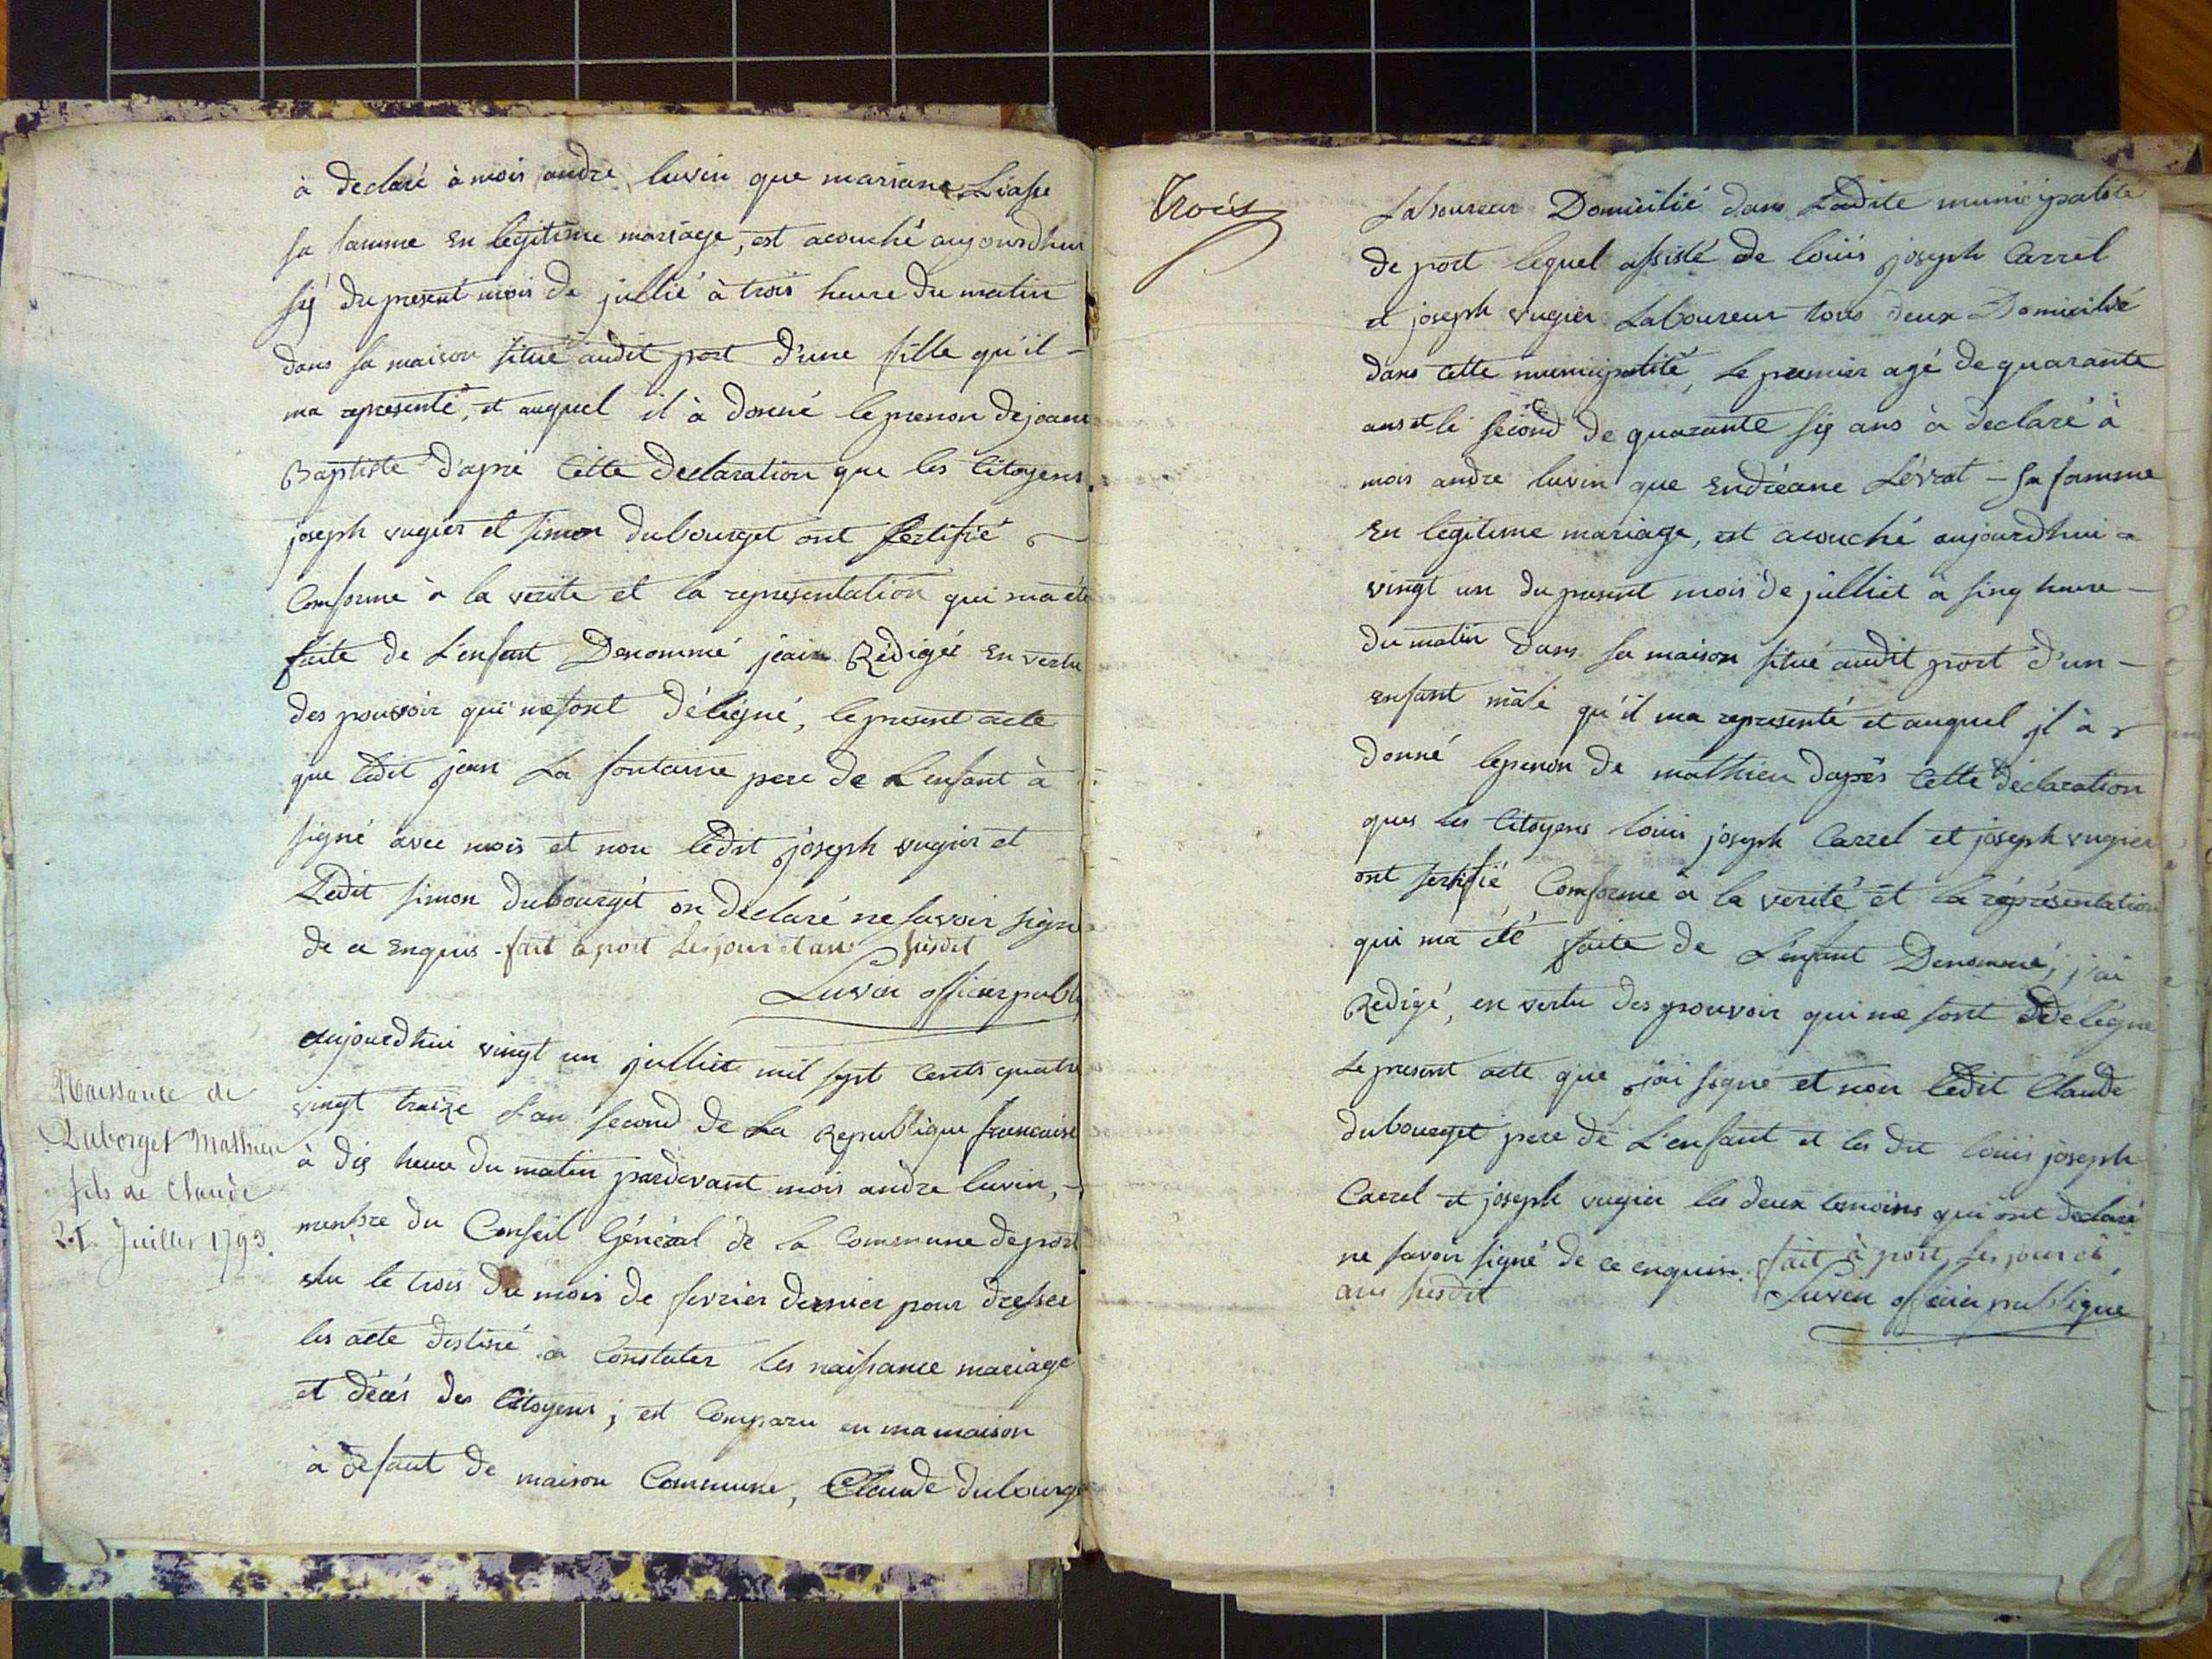 à declaré à mois andre luvin que mariane Liasse
sa famme En legitime mariage, est acouché aujourdhui
six du present mois de jullié à trois heure du matin
dans sa maison situé audit port d'une fille qu'il -
ma representé, et auquel il à donné le prenon de jeane
Baptiste d'aprè Cette declaration que les Citoyens
joseph vugier et simon dubourget ont sertifié
Comforme à la verite et la representation qui ma été
faite de L'enfant Denommé jeai Rédigée En vertu
des pouvoir qui me sont délégné, le present acte
que ledit jean La fontaine pere de L'enfant à
signé avec mois et non ledit joseph vugier et
Ledit simon dubourgit on declaré ne savoir signe
de ce Enquis - fait à port Les jour et an susdit
Luvin officier public
aujourdhui vingt un julliet mil sept cents quatre
vingt traize L'an second de La Republique francaise
à dix heure du matin pardevant mois andre luvin, -
menbre du Conseil Général de la Commune de port
elu le trois du mois de fevrier dernier pour dresser
les acte destiné à Constater les naissance mariage
et décès des Citoyens ; est Comparu en ma maison
à defaut de maison Commune, Claude dubourge
Naissance de
Duborget Mathieu
fils de Claude
21 Juillet 1793.
Trois
Laboureur Domicilié dans Ladite municipalité
de port lequel assisté de louis joseph Carrel
et joseph vugier Laboureur tous deux Domicilié
dans cette municipalité, Le premier agé de quarante
ans et le second de quarante six ans à declaré à
mois andre luvin que Endréane Lévrat - sa famme
En legitime mariage, est acouché aujourdhui
vingt un du present mois de julliet à sinq heure -
du matin dans sa maison situé audit port d'un -
enfant mâle qu'il ma representé et auquel il à
donné le prenon de mathieu daprès Cette déclaration
ques les Citoyens louis joseph Carrel et joseph vugier
ont sertifié Comforme a la verité et la réprésentation
qui ma été faite de L'enfant Denommé, j'ai
Redigé, en vertu des pouvoir qui me sont délégné
Le present acte que j'ai signé et non ledit Claude
dubourget pere de L'enfant et les dit louis joseph
Carrel et joseph vugier les deux temoins qui ont declaré
ne savoir signé de ce enquis. fait à port, les jour et
an susdit
Luvin officier publique